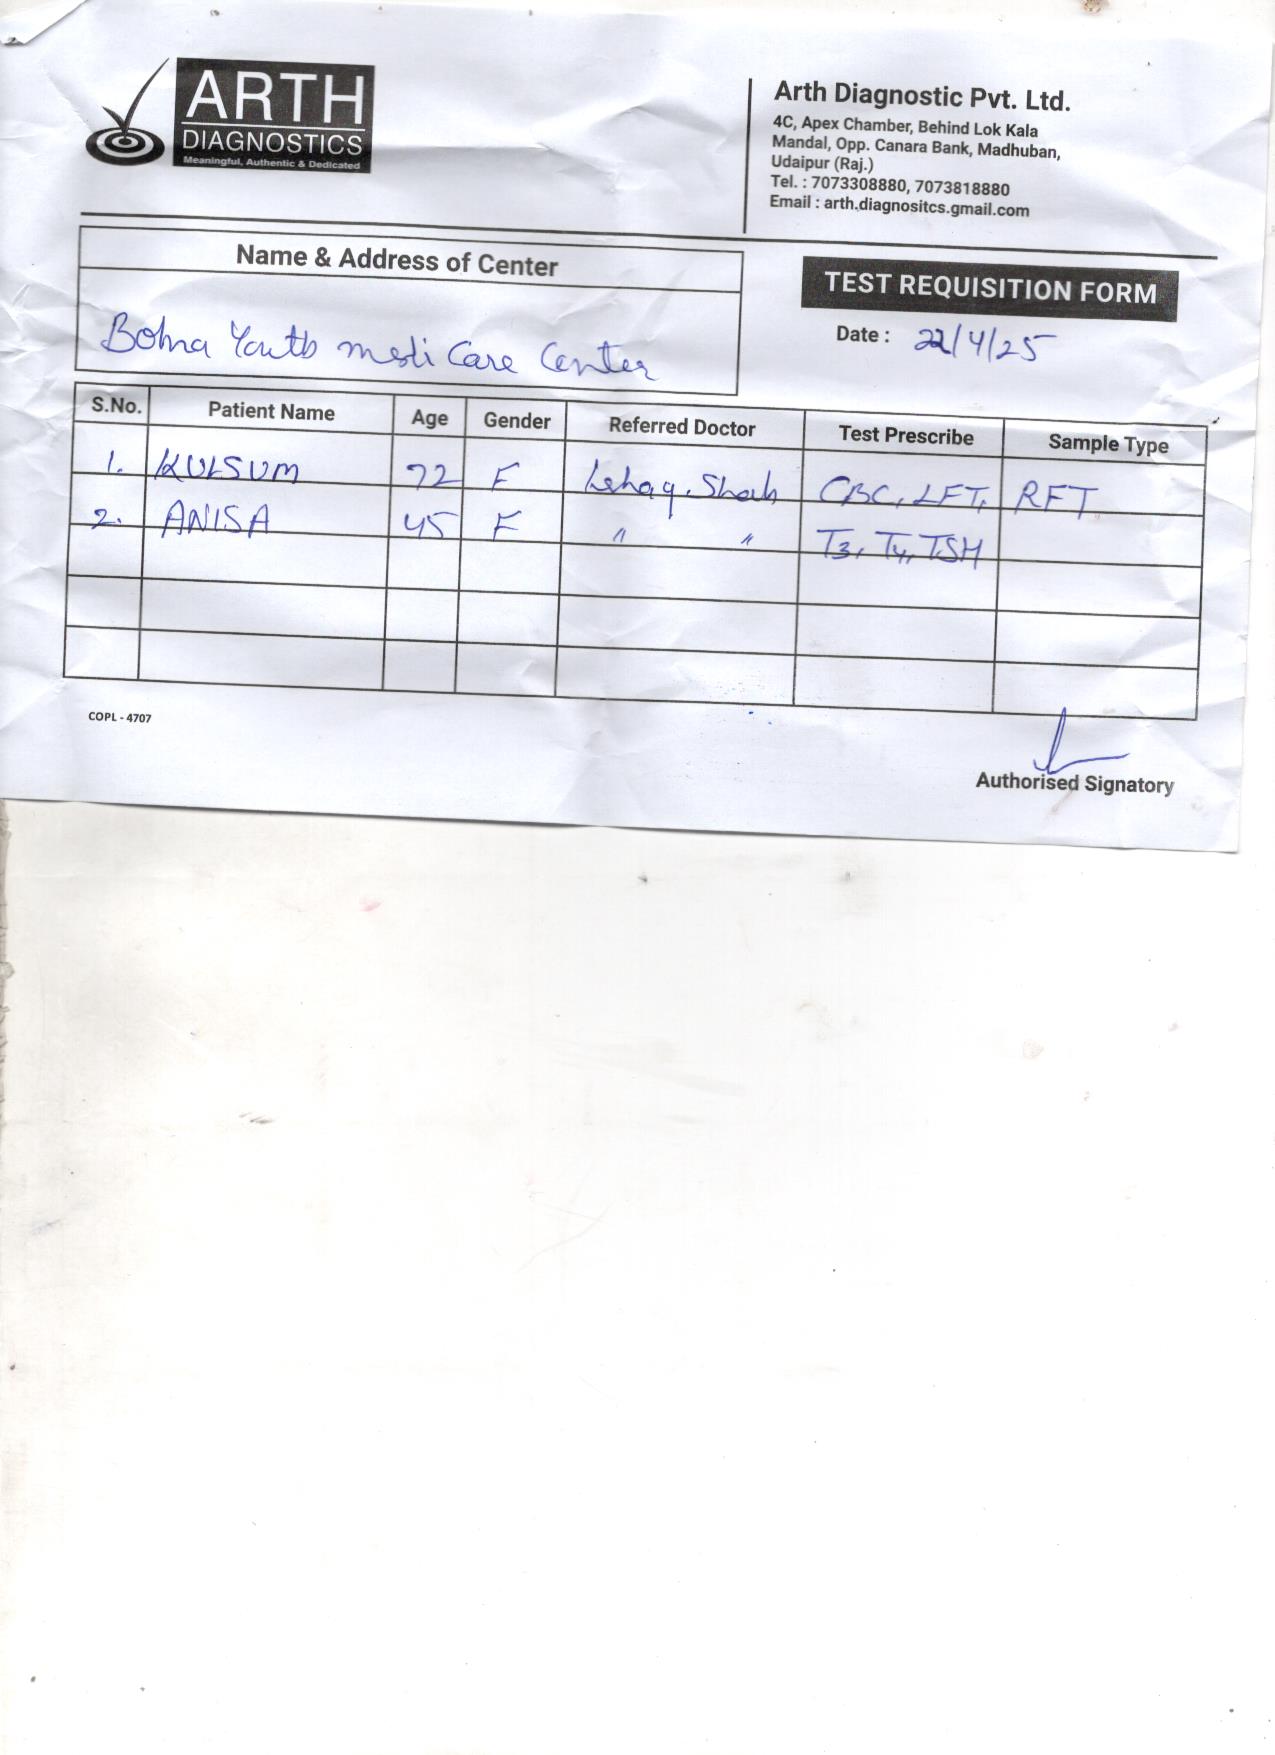 ARTH
DIAGNOSTICS
Meaningful, Authentic & Dedicated
Arth Diagnostic Pvt. Ltd.
4C, Apex Chamber, Behind Lok Kala
Mandal, Opp. Canara Bank, Madhuban,
Udaipur (Raj.)
Tel. : 7073308880, 7073818880
Email : arth.diagnositcs.gmail.com
Name & Address of Center
Bohra Youth medi Care Center
TEST REQUISITION FORM
Date : 22/4/25
S.No. Patient Name Age Gender Referred Doctor Test Prescribe Sample Type
1. KULSUM 72 F Shah CBC, LFT, RFT
2. ANISA 45 F " " T3, T4, TSH
COPL - 4707
Authorised Signatory